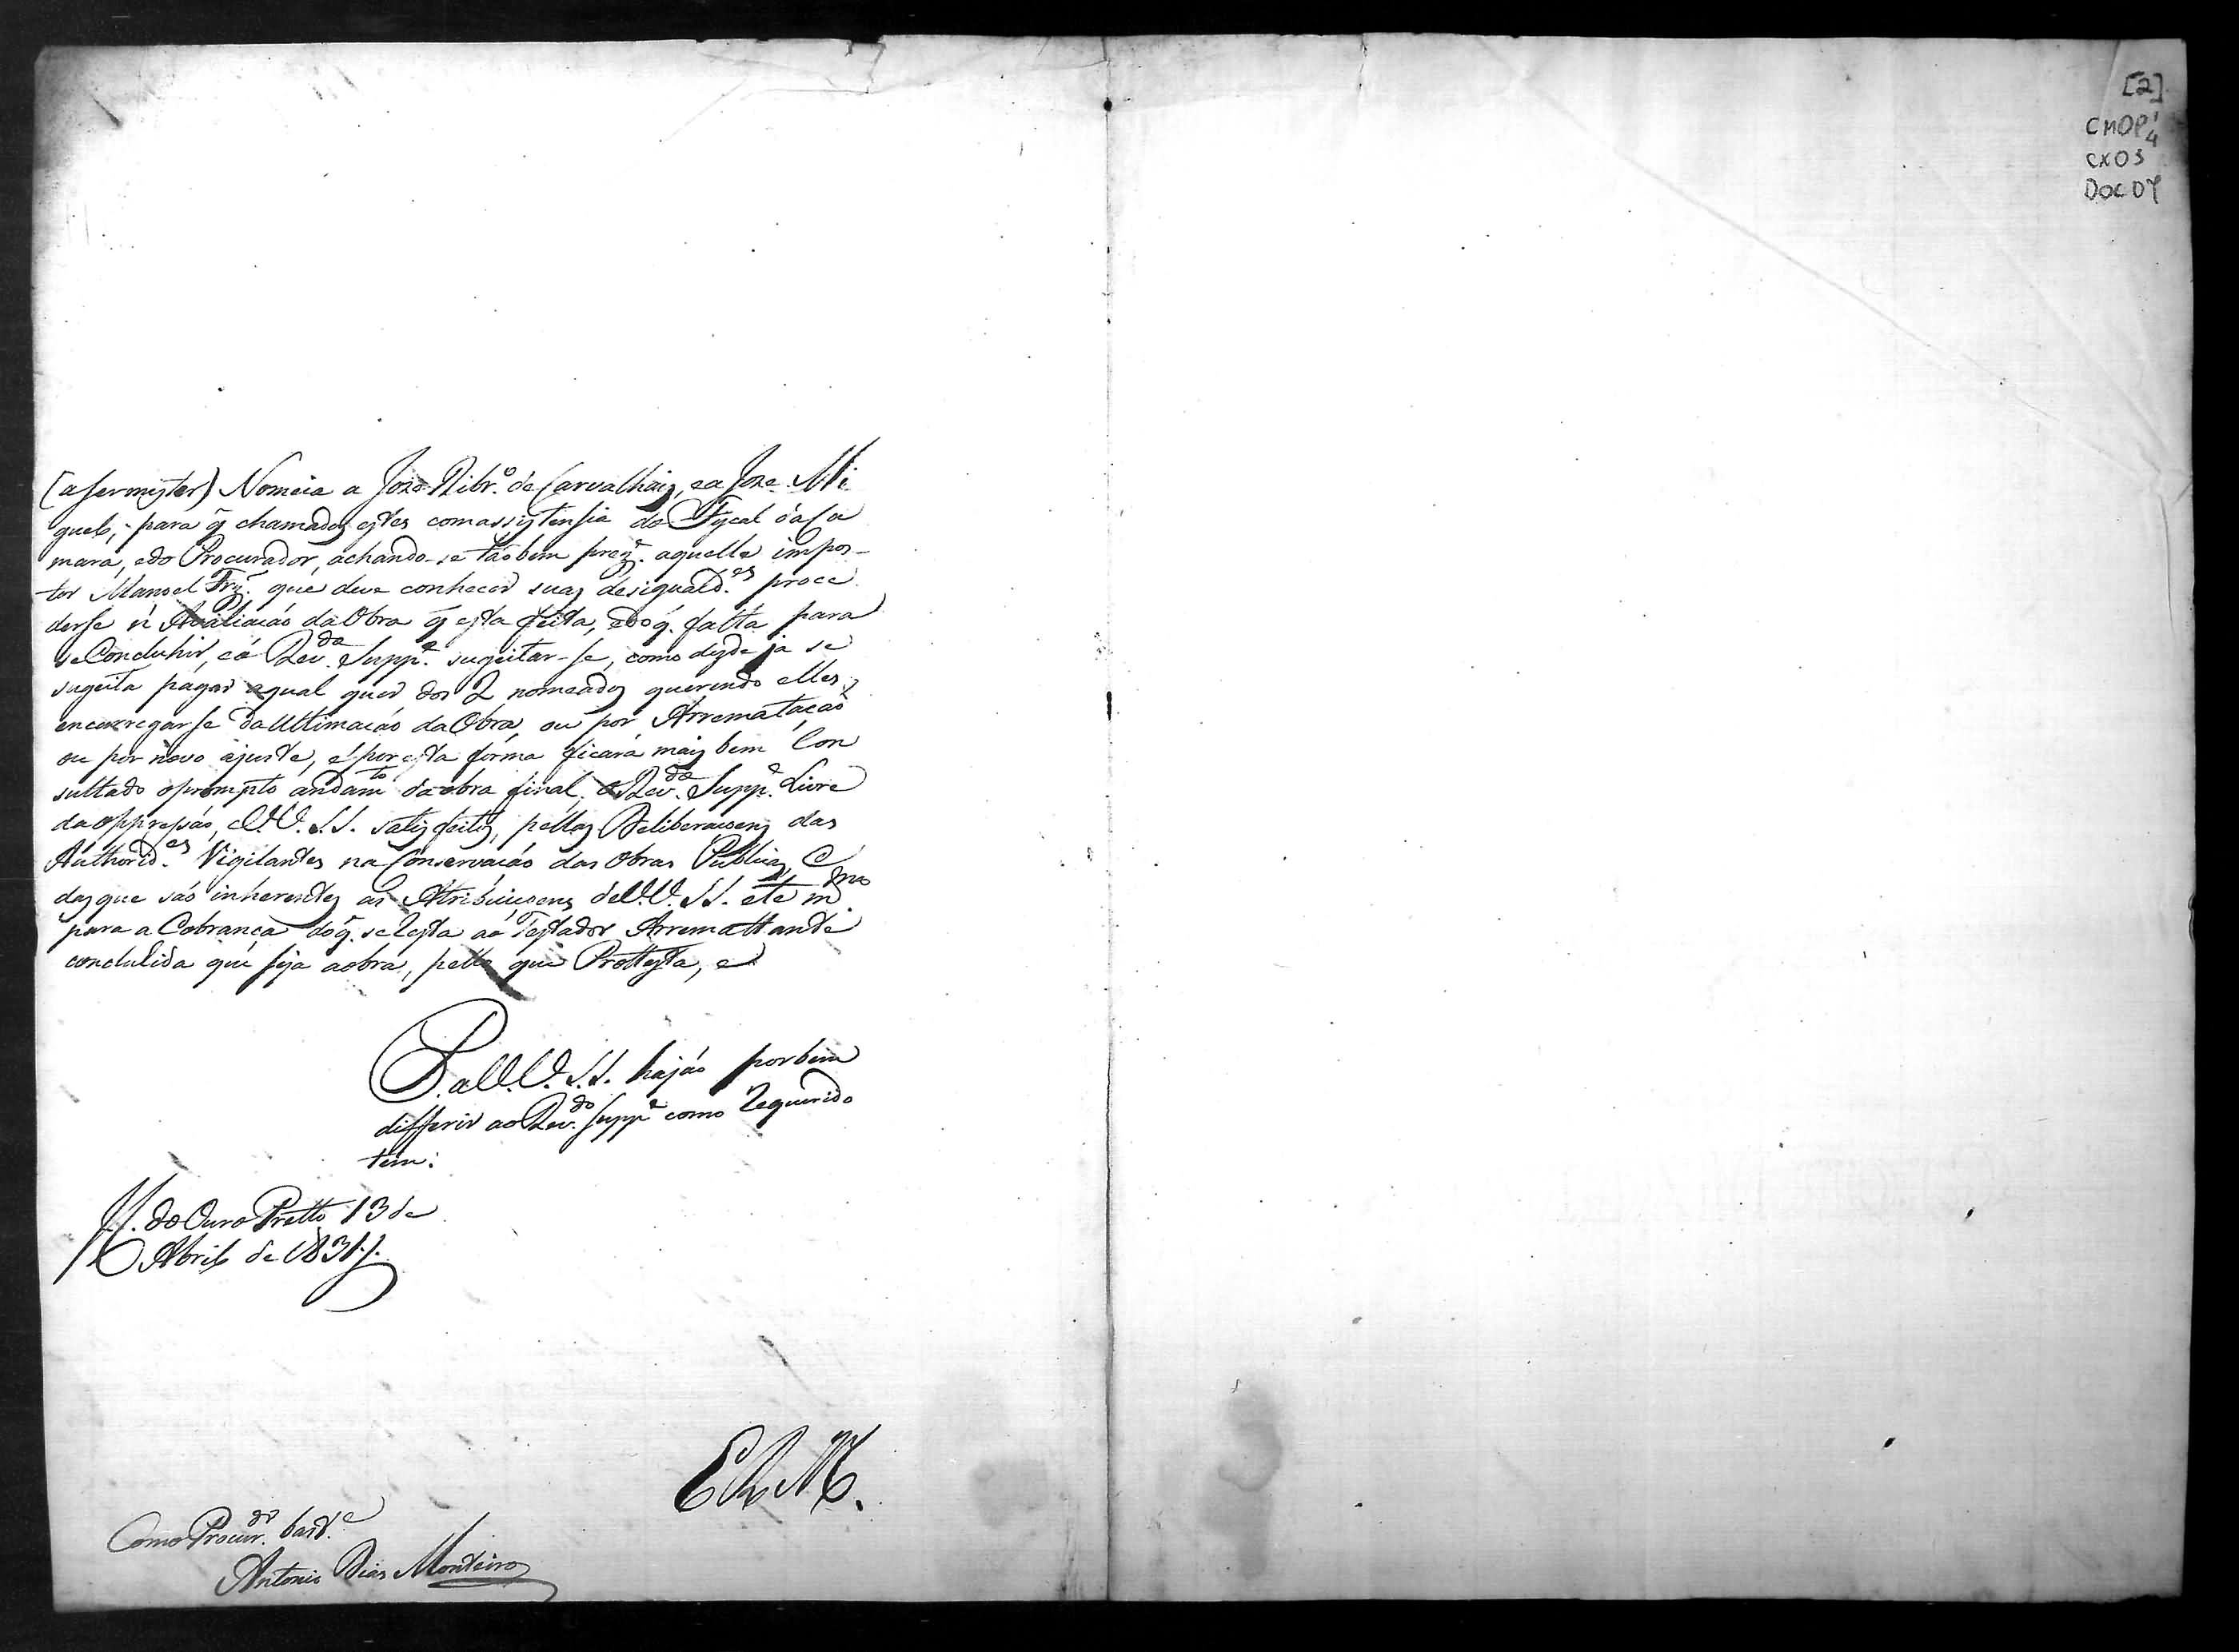 (a ser mister) Nomeia a Joze Ribr.º de Carvalhais, e a Joze Mi
guel, para q̃ chamados estes com assistensia do Fiscal da Ca
mara, e do Procurador, achando-se taobem prez.e aquelle impos-
tor Manoel que deve conhecer suas desiguald.es proce
derse á Avaliaçaó da Obra q̃ esta feita, e do q̃ falta para
se Concluhir, e o Rev.do Supp.e sugeitar-se, como desde ja se
sugeita pagar a qual quer dos 2 nomeados querendo elles
encarregarse da Ultimaçaó da Obra, ou por Arremataçaó
ou por novo ajuste, e por esta forma ficará mais bem Con
sultado o prompto andam.to da obra final, o Rev.do Supp.e Livre
da oppressaó, e V.V. S.S. satisfeitos, pellas Deliberaçoens das
Authorid.es Vigilantes na Conservaçaó das Obras Publicas, e
das que saó inherentes as Atribuiçoens de V.V. S.S. ete mmo
para a Cobrança do q̃ se Resta ao Testador Arremattante
concluhida que seja a obra, pello que Prottesta, e
P. a V.V. S.S. hajaó por bem
differir ao Rev.do Supp.e como Requerido
tem:
do Ouro Pretto 13 de
Abril de 1831.
E R M.
Como Procur.dor bast.e
Antonio Dias Monteiro
[2]
CMOP 1/4
CX03
DOC 07